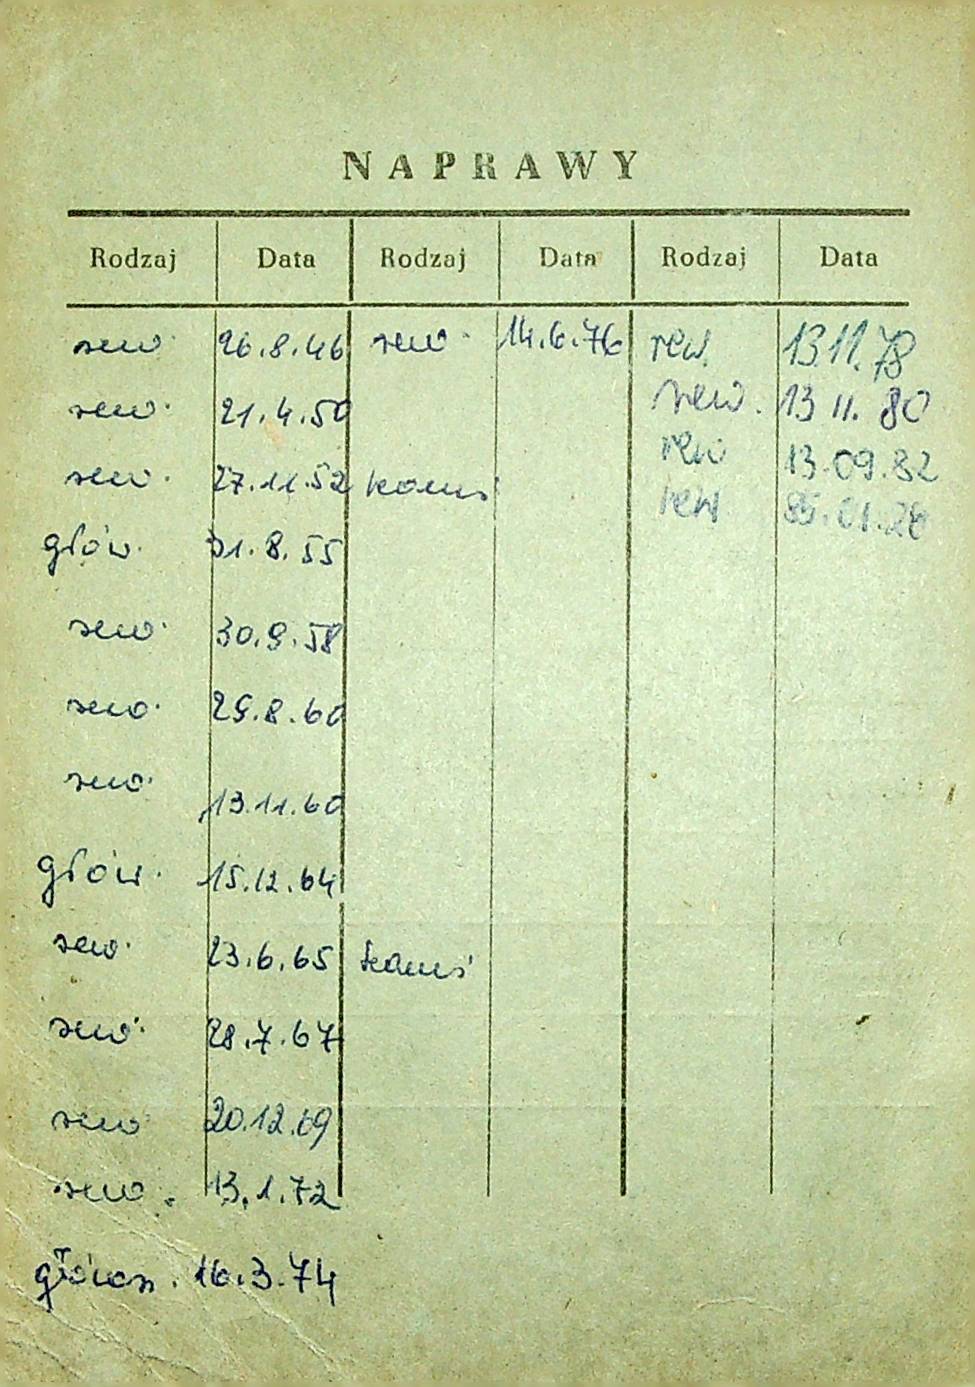 NAPRAWY
Rodzaj Data Rodzaj Data Rodzaj Data
rew. 26.8.46 rew. 14.6.76 rew. 13.11.78
rew. 21.4.50 rew. 13 11. 80
rew. 27.11.52 rew 13.09.82
głów. 31.8.55 rew
rew. 30.9.58
rew. 29.8.60
rew. 13.11.60
głów. 15.12.64
rew. 23.6.65
rew. 28.7.67
rew 20.12.69
rew. 13.1.72
16.3.74